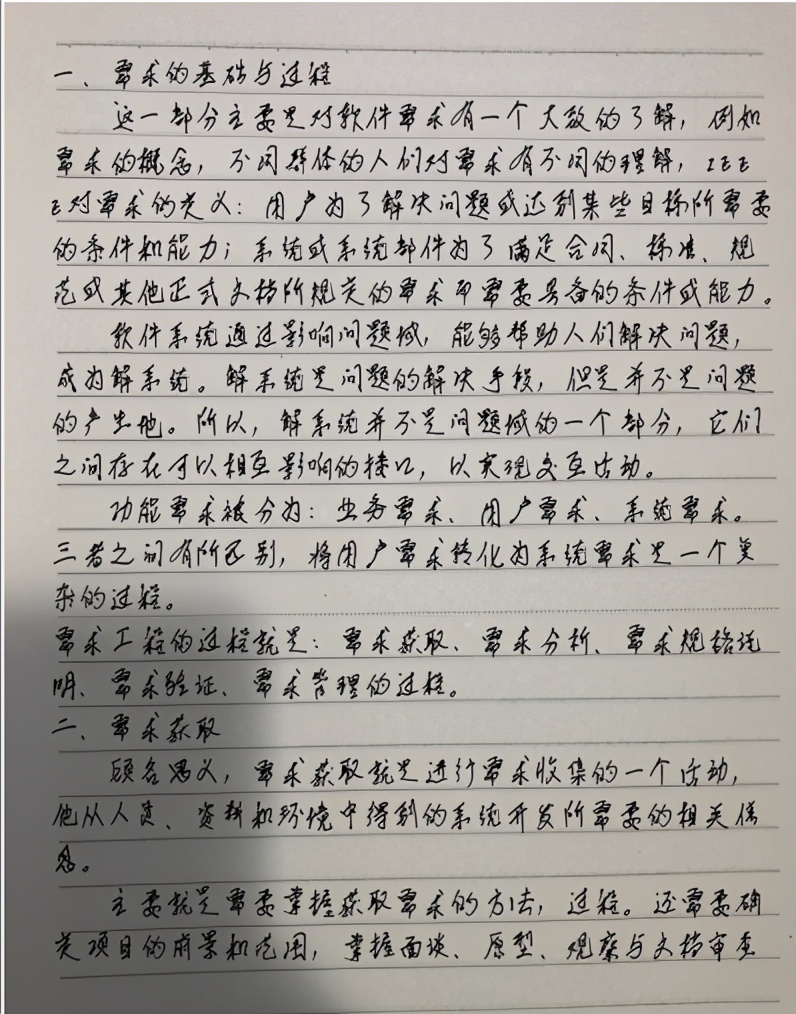 一、需求的基础与过程
这一部分主要是对软件需求有一个大致的了解，例如
需求的概念，不同群体的人们对需求有不同的理解，IEE
E对需求的定义：用户为了解决问题或达到某些目标所需要
的条件和能力；系统或系统部件为了满足合同、标准、规
范或其他正式文档所规定的需求即需要具备的条件或能力。
软件系统通过影响问题域，能够帮助人们解决问题，
成为解系统。解系统是问题的解决手段，但是并不是问题
的产生地。所以，解系统并不是问题域的一个部分，它们
之间存在可以相互影响的接口，以实现交互活动。
功能需求被分为：业务需求、用户需求、系统需求。
三者之间有所区别，将用户需求转化为系统需求是一个复
杂的过程。
需求工程的过程就是：需求获取、需求分析、需求规格说
明、需求验证、需求管理的过程。
二、需求获取
顾名思义，需求获取就是进行需求收集的一个活动，
他从人员、资料和环境中得到的系统开发所需要的相关信
息。
主要就是需要掌握获取需求的方法，过程。还需要确
定项目的前景和范围，掌握面谈、原型、观察与文档审查